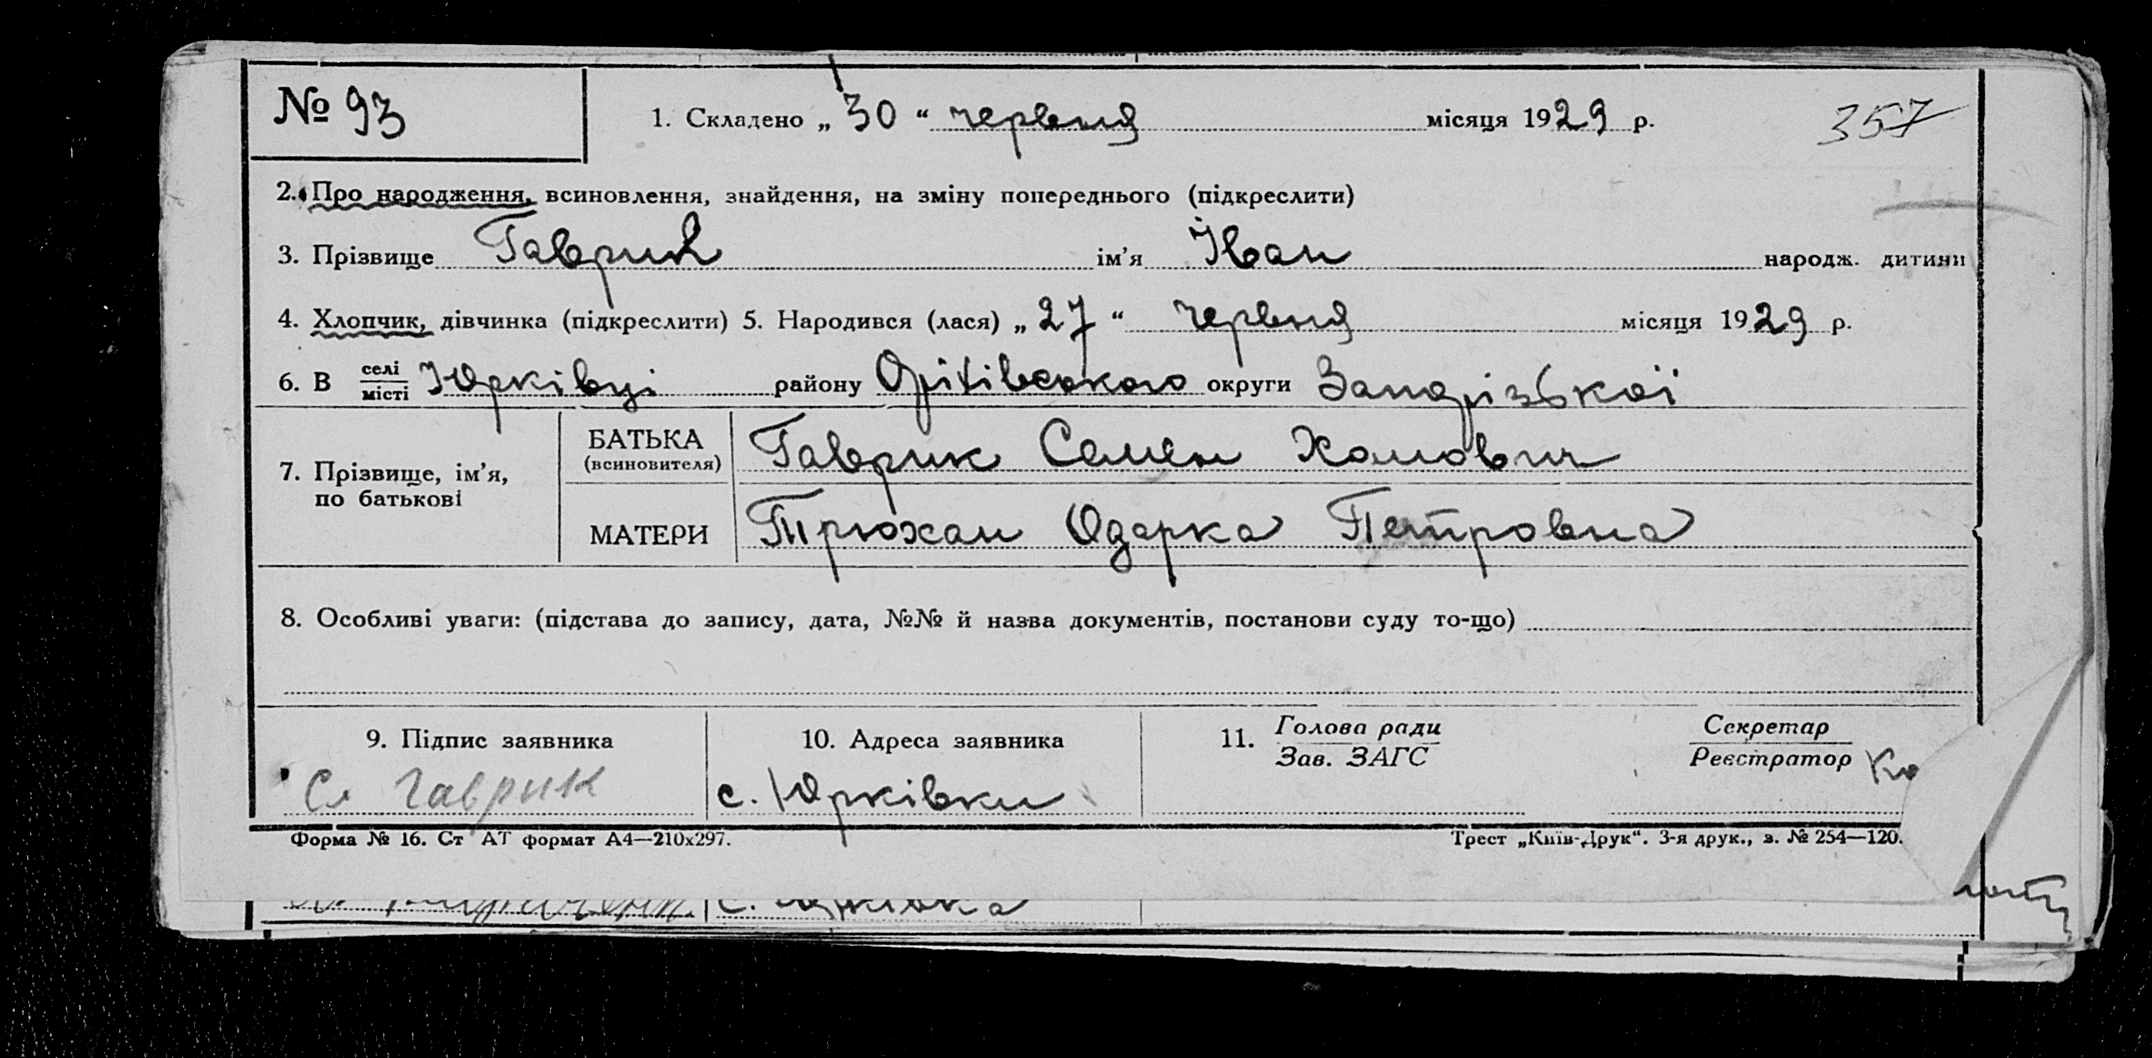 № 93 1. Складено „30“ червня місяця 1929 р. 357
2. Про народження, всиновлення, знайдення, на зміну попереднього (підкреслити)
3. Прізвище Гаврик ім’я Іван народж. дитини
4. Хлопчик, дівчинка (підкреслити) 5. Народився (лася) „27“ червня місяця 1929 р.
6. В селі/місті Юрківці району Оріхівського округи Запорізької
7. Прізвище, ім’я, по батькові
БАТЬКА (всиновителя) Гаврик Семен Хомович
МАТЕРИ Трюхан Одарка Петровна
8. Особливі уваги: (підстава до запису, дата, №№ й назва документів, постанови суду то-що)
9. Підпис заявника 10. Адреса заявника 11. Голова ради/Зав. ЗАГС Секретар/Реєстратор
Гаврик с. Юрківки
Форма № 16. Ст АТ формат А4—210х297. Трест „Київ-Друк“. 3-я друк., з. № 254—120.